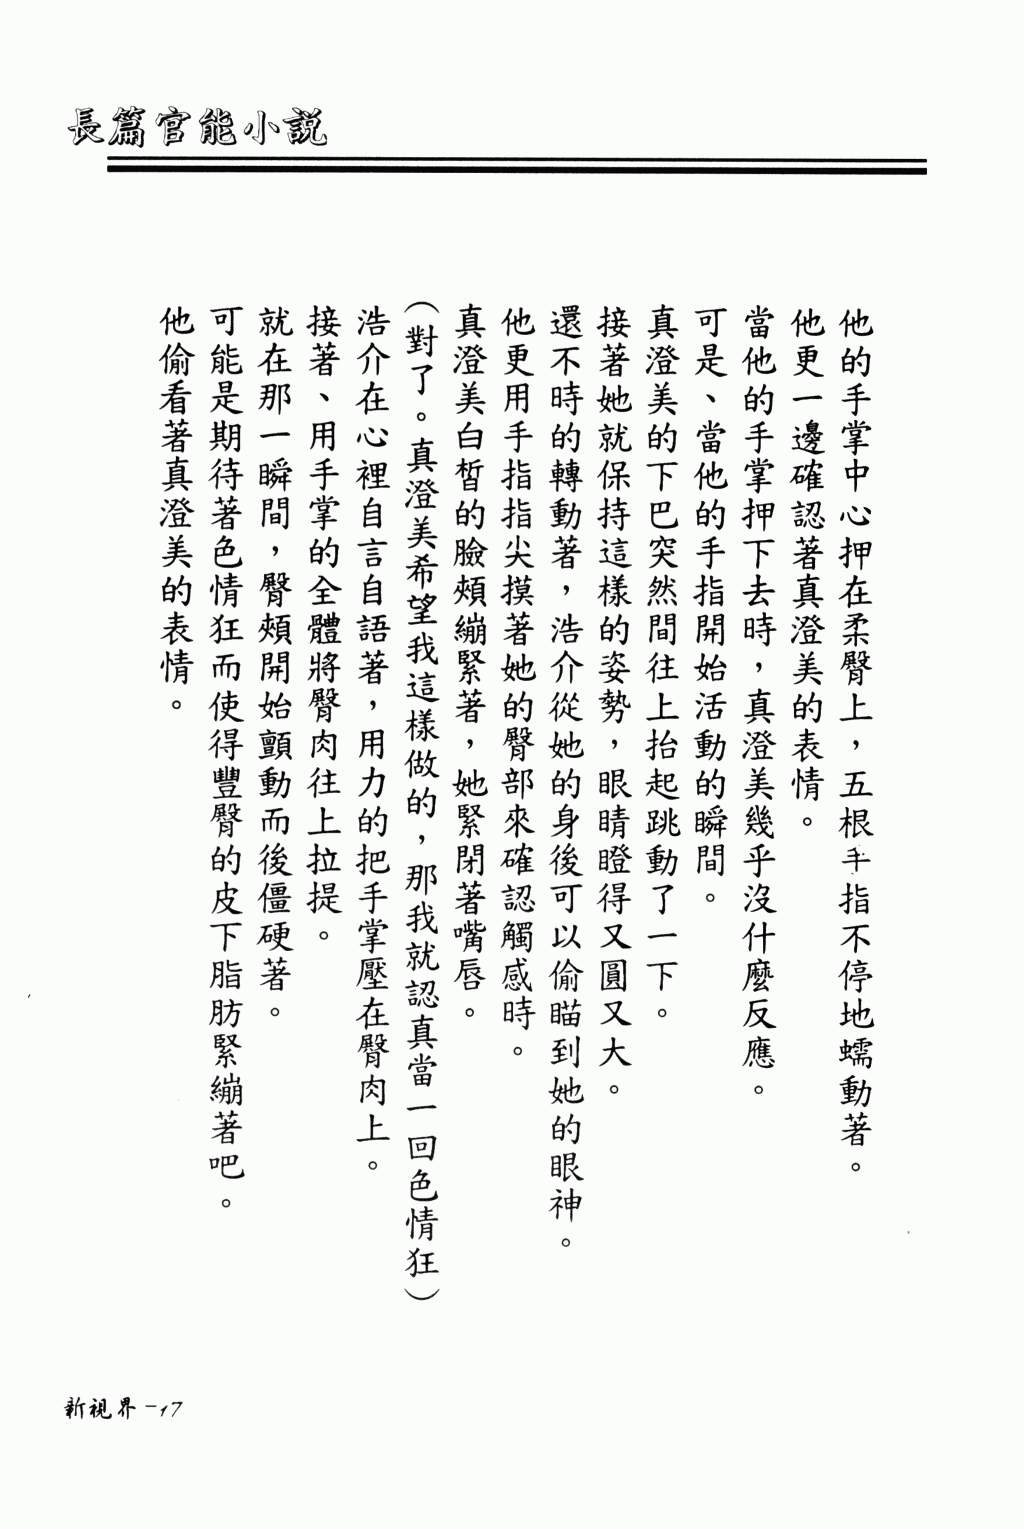 長篇官能小説
他的手掌中心押在柔臀上，五根手指不停地蠕動著。
他更一邊確認著真澄美的表情。
當他的手掌押下去時，真澄美幾乎沒什麼反應。
可是、當他的手指開始活動的瞬間。
真澄美的下巴突然間往上抬起跳動了一下。
接著她就保持這樣的姿勢，眼睛瞪得又圓又大。
還不時的轉動著，浩介從她的身後可以偷瞄到她的眼神。
他更用手指指尖摸著她的臀部來確認觸感時。
真澄美白皙的臉頰繃緊著，她緊閉著嘴唇。
（對了。真澄美希望我這樣做的，那我就認真當一回色情狂）
浩介在心裡自言自語著，用力的把手掌壓在臀肉上。
接著、用手掌的全體將臀肉往上拉提。
就在那一瞬間，臀頰開始顫動而後僵硬著。
可能是期待著色情狂而使得豐臀的皮下脂肪緊繃著吧。
他偷看著真澄美的表情。
新視界－17